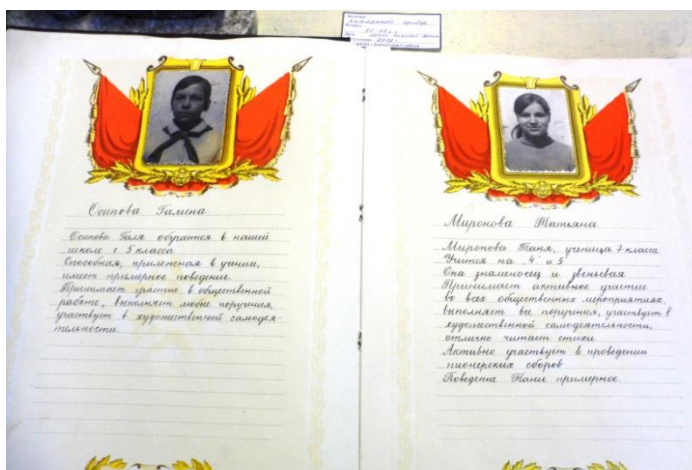 Осипова Галина
Осипова Галя обучается в нашей
школе с 5 класса
Способная, прилежная в учении,
имеет примерное поведение.
Принимает участие в общественной
работе, выполняет любые поручения,
участвует в художественной самодея-
тельности.
Миронова Татьяна
Миронова Таня, ученица 7 класса
Учится на „4" и „5"
Она знаменосец и звеньевая
Принимает активное участие
во всех общественных мероприятиях,
выполняет все поручения, участвует в
художественной самодеятельности,
отлично читает стихи
Активно участвует в проведении
пионерских сборов
Поведение Тани примерное.